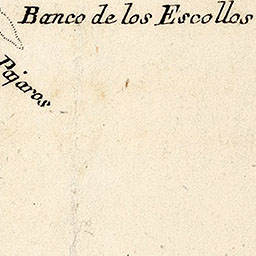 Banco de los Escollos
Pajaros